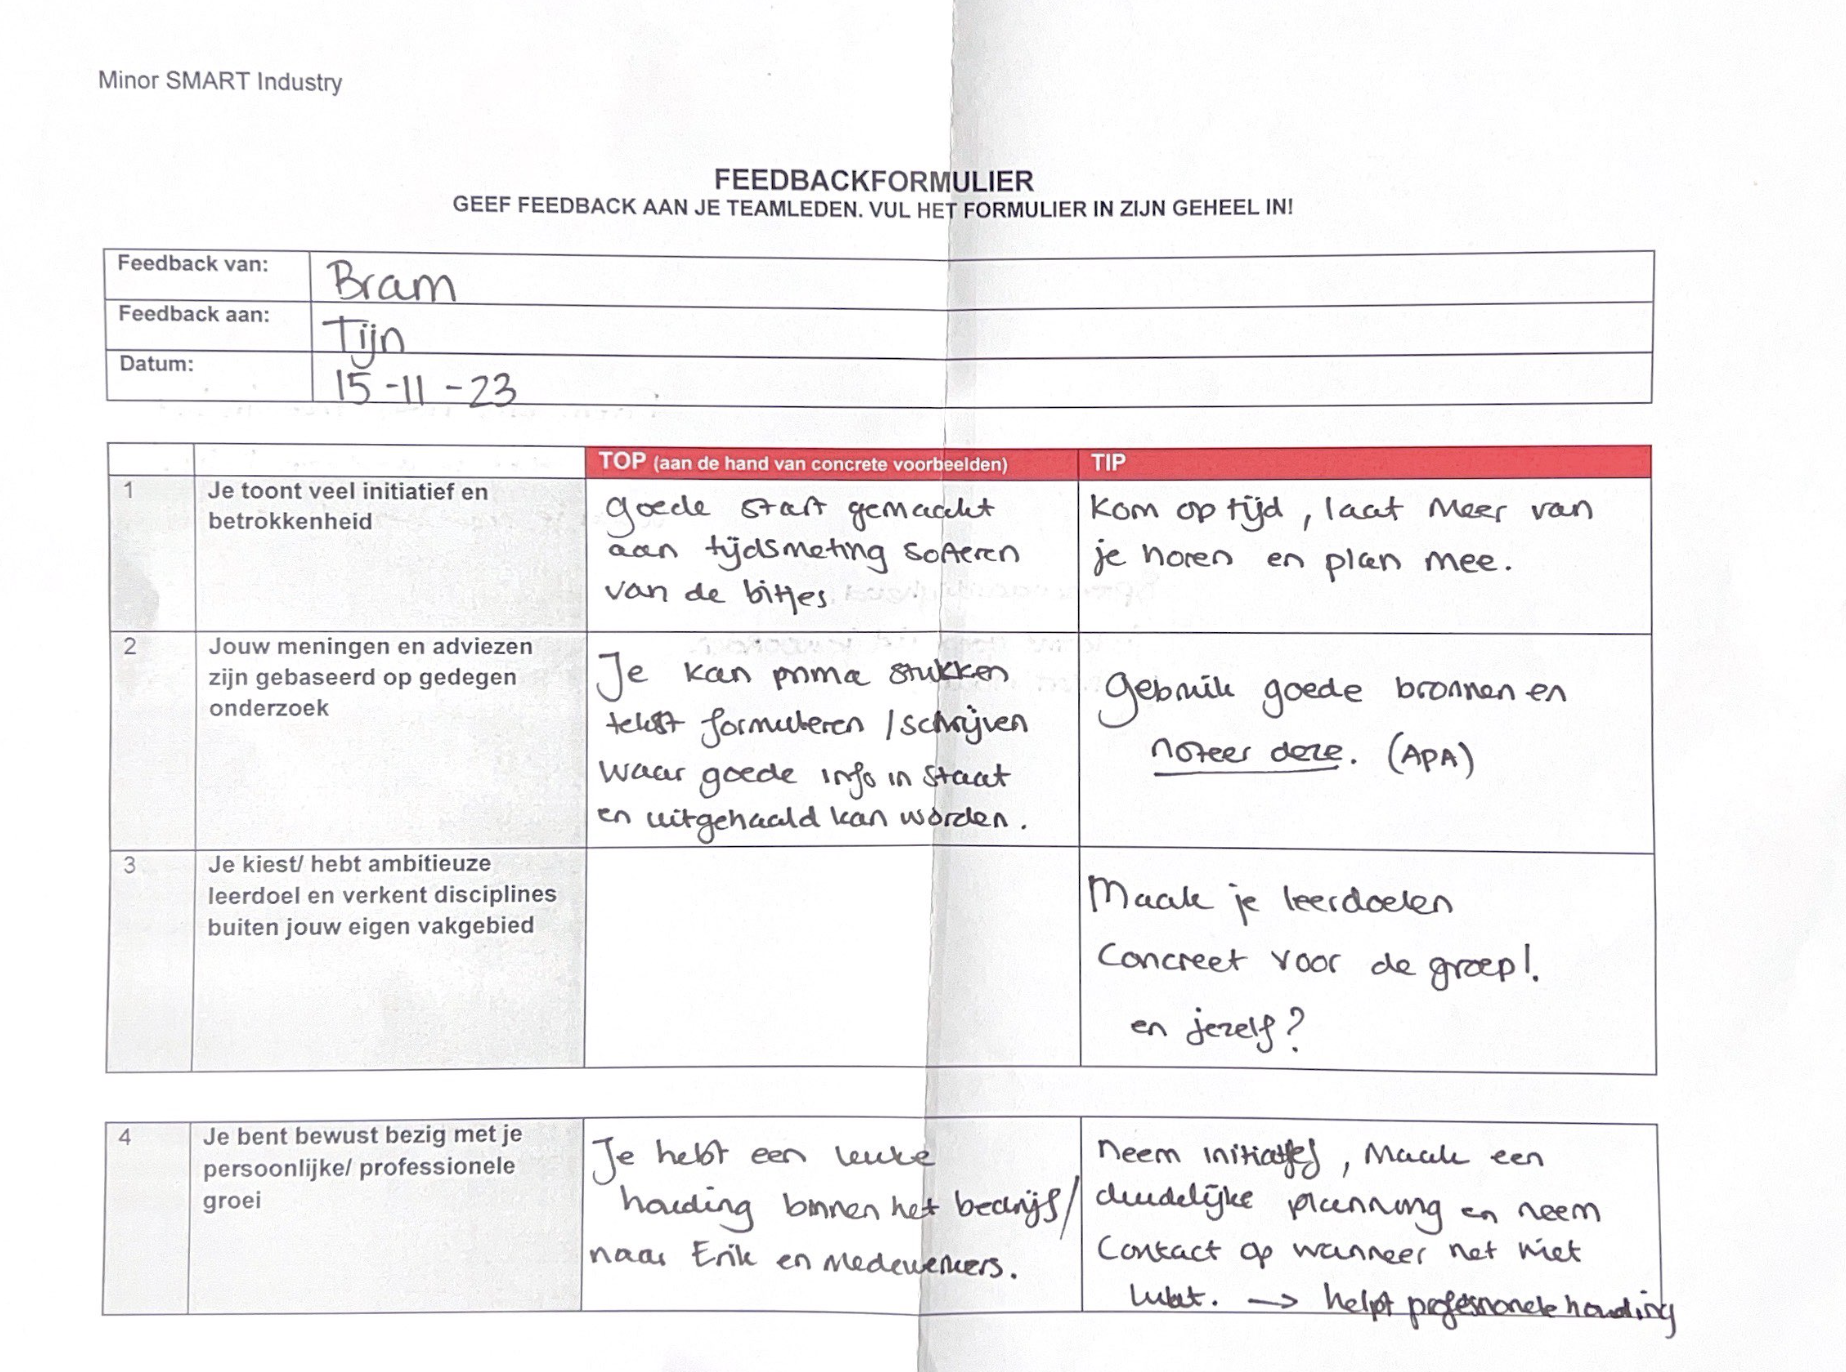 Minor SMART Industry
FEEDBACKFORMULIER
GEEF FEEDBACK AAN JE TEAMLEDEN. VUL HET FORMULIER IN ZIJN GEHEEL IN!
Feedback van: Bram
Feedback aan: Tijn
Datum: 15-11-23
TOP (aan de hand van concrete voorbeelden)
TIP
1
Je toont veel initiatief en
betrokkenheid
goede start gemaakt
aan tijdsmeting soreren
van de bitjes
Kom op tijd, laat meer van
je horen en plan mee.
2
Jouw meningen en adviezen
zijn gebaseerd op gedegen
onderzoek
Je kan prima stukken
tekst formuleren / schrijven
waar goede info in staat
en uitgehaald kan worden.
gebruik goede bronnen en
noteer deze. (APA)
3
Je kiest/ hebt ambitieuze
leerdoel en verkent disciplines
buiten jouw eigen vakgebied
Maak je leerdoelen
Concreet voor de groep!.
en jezelf?
4
Je bent bewust bezig met je
persoonlijke/ professionele
groei
Je hebt een leuke
houding binnen het bedrijf/
naar Erik en medewerkers.
neem initiatief, Maak een
duidelijke planning en neem
Contact op wanneer het niet
lukt. -> helpt professionele houding